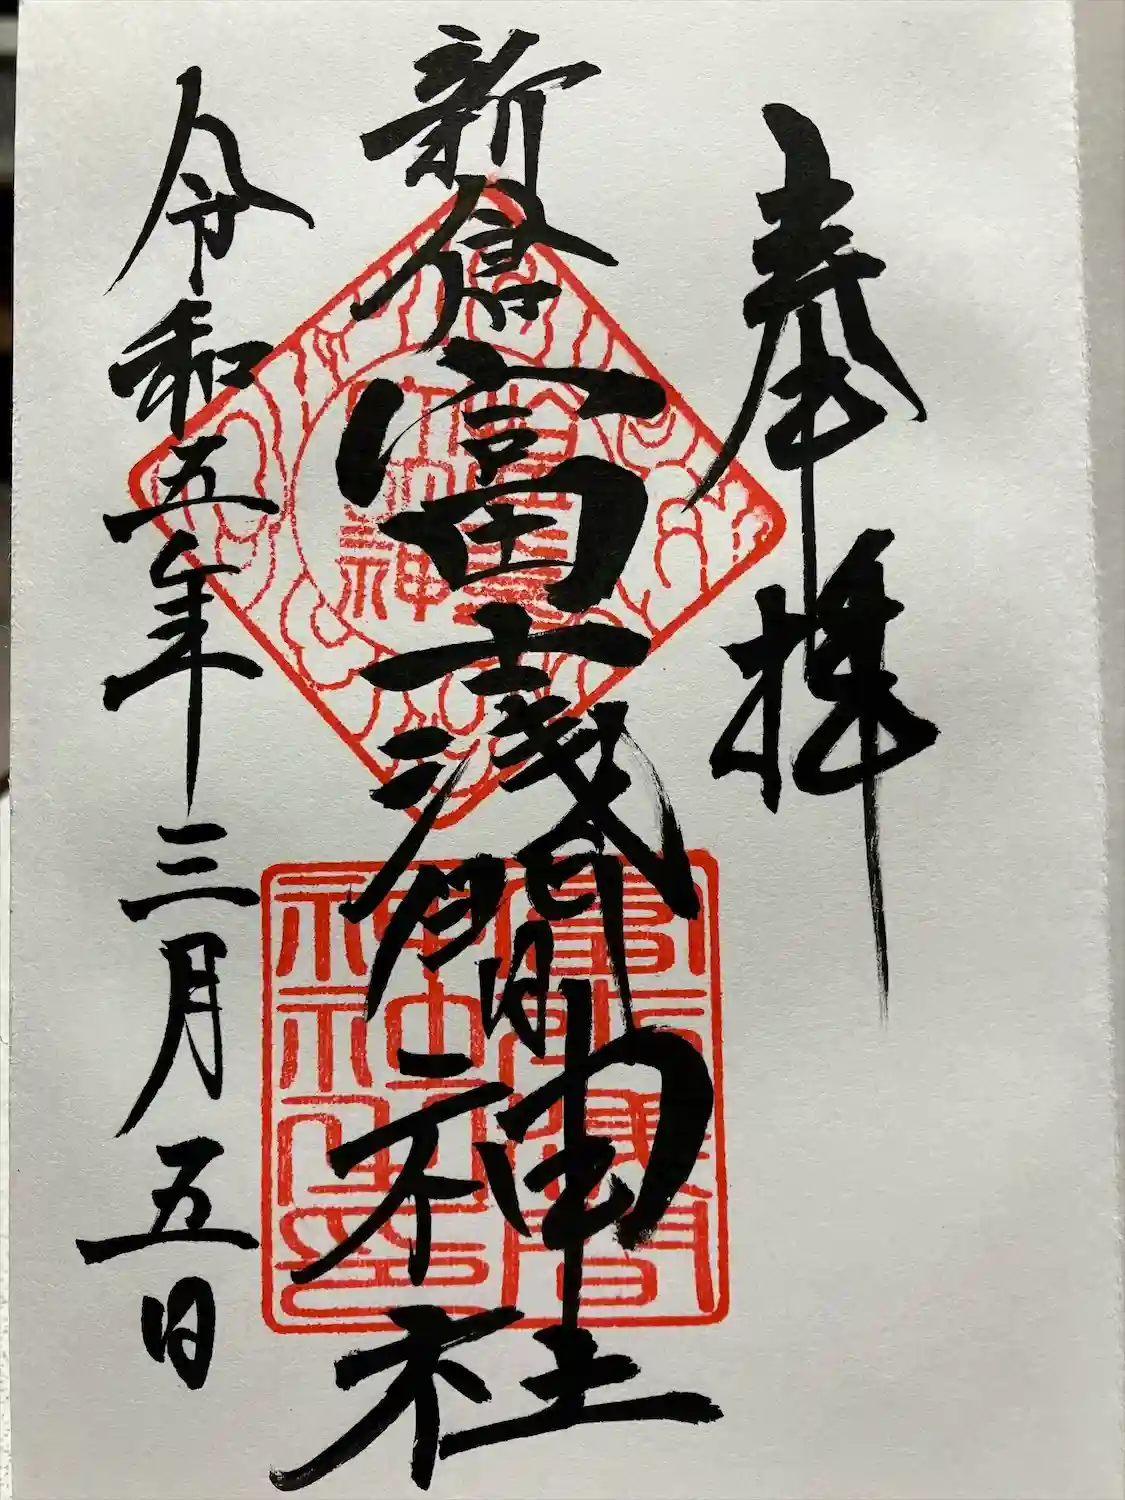 奉拝
新倉富士浅間神社
令和五年三月五日